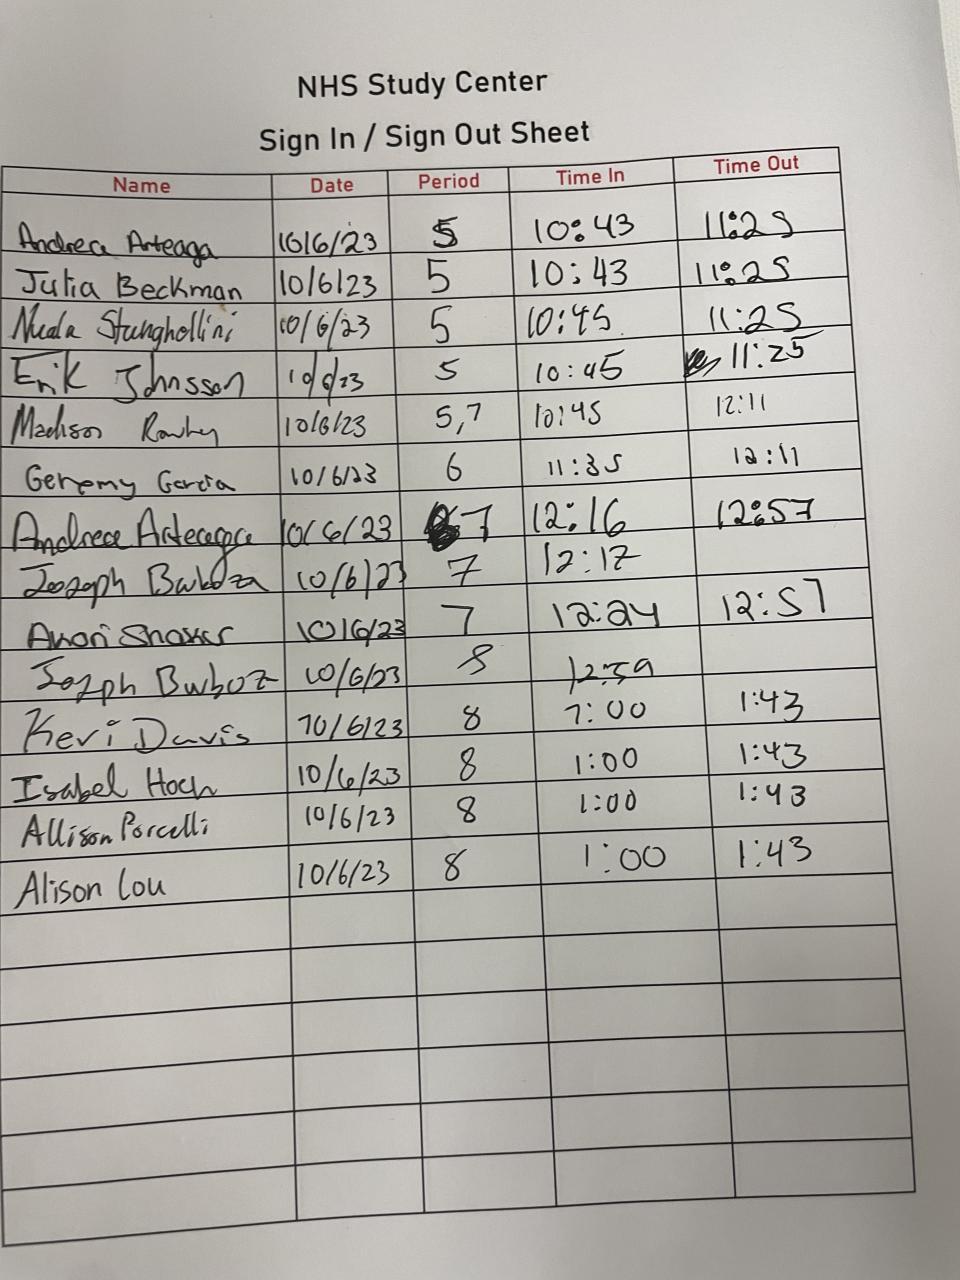 NHS Study Center
Sign In / Sign Out Sheet
Name Date Period Time In Time Out
Andrea Arteaga 10/6/23 5 10:43 11:25
Julia Beckman 10/6/23 5 10:43 11:25
10/6/23 5 10:45 11:25
Erik Johnsson 10/6/23 5 10:45 11:25
Madison 10/6/23 5,7 10:45 12:11
Geremy Garcia 10/6/23 6 11:35 12:11
Andrea Arteaga 10/6/23 7 12:16 12:57
Joseph 10/6/23 7 12:17
10/6/23 7 12:24 12:57
Joseph 10/6/23 8 12:59
Keri Davis 10/6/23 8 1:00 1:43
Isabel Hoch 10/6/23 8 1:00 1:43
Allison Porcelli 10/6/23 8 1:00 1:43
Alison Lou 10/6/23 8 1:00 1:43